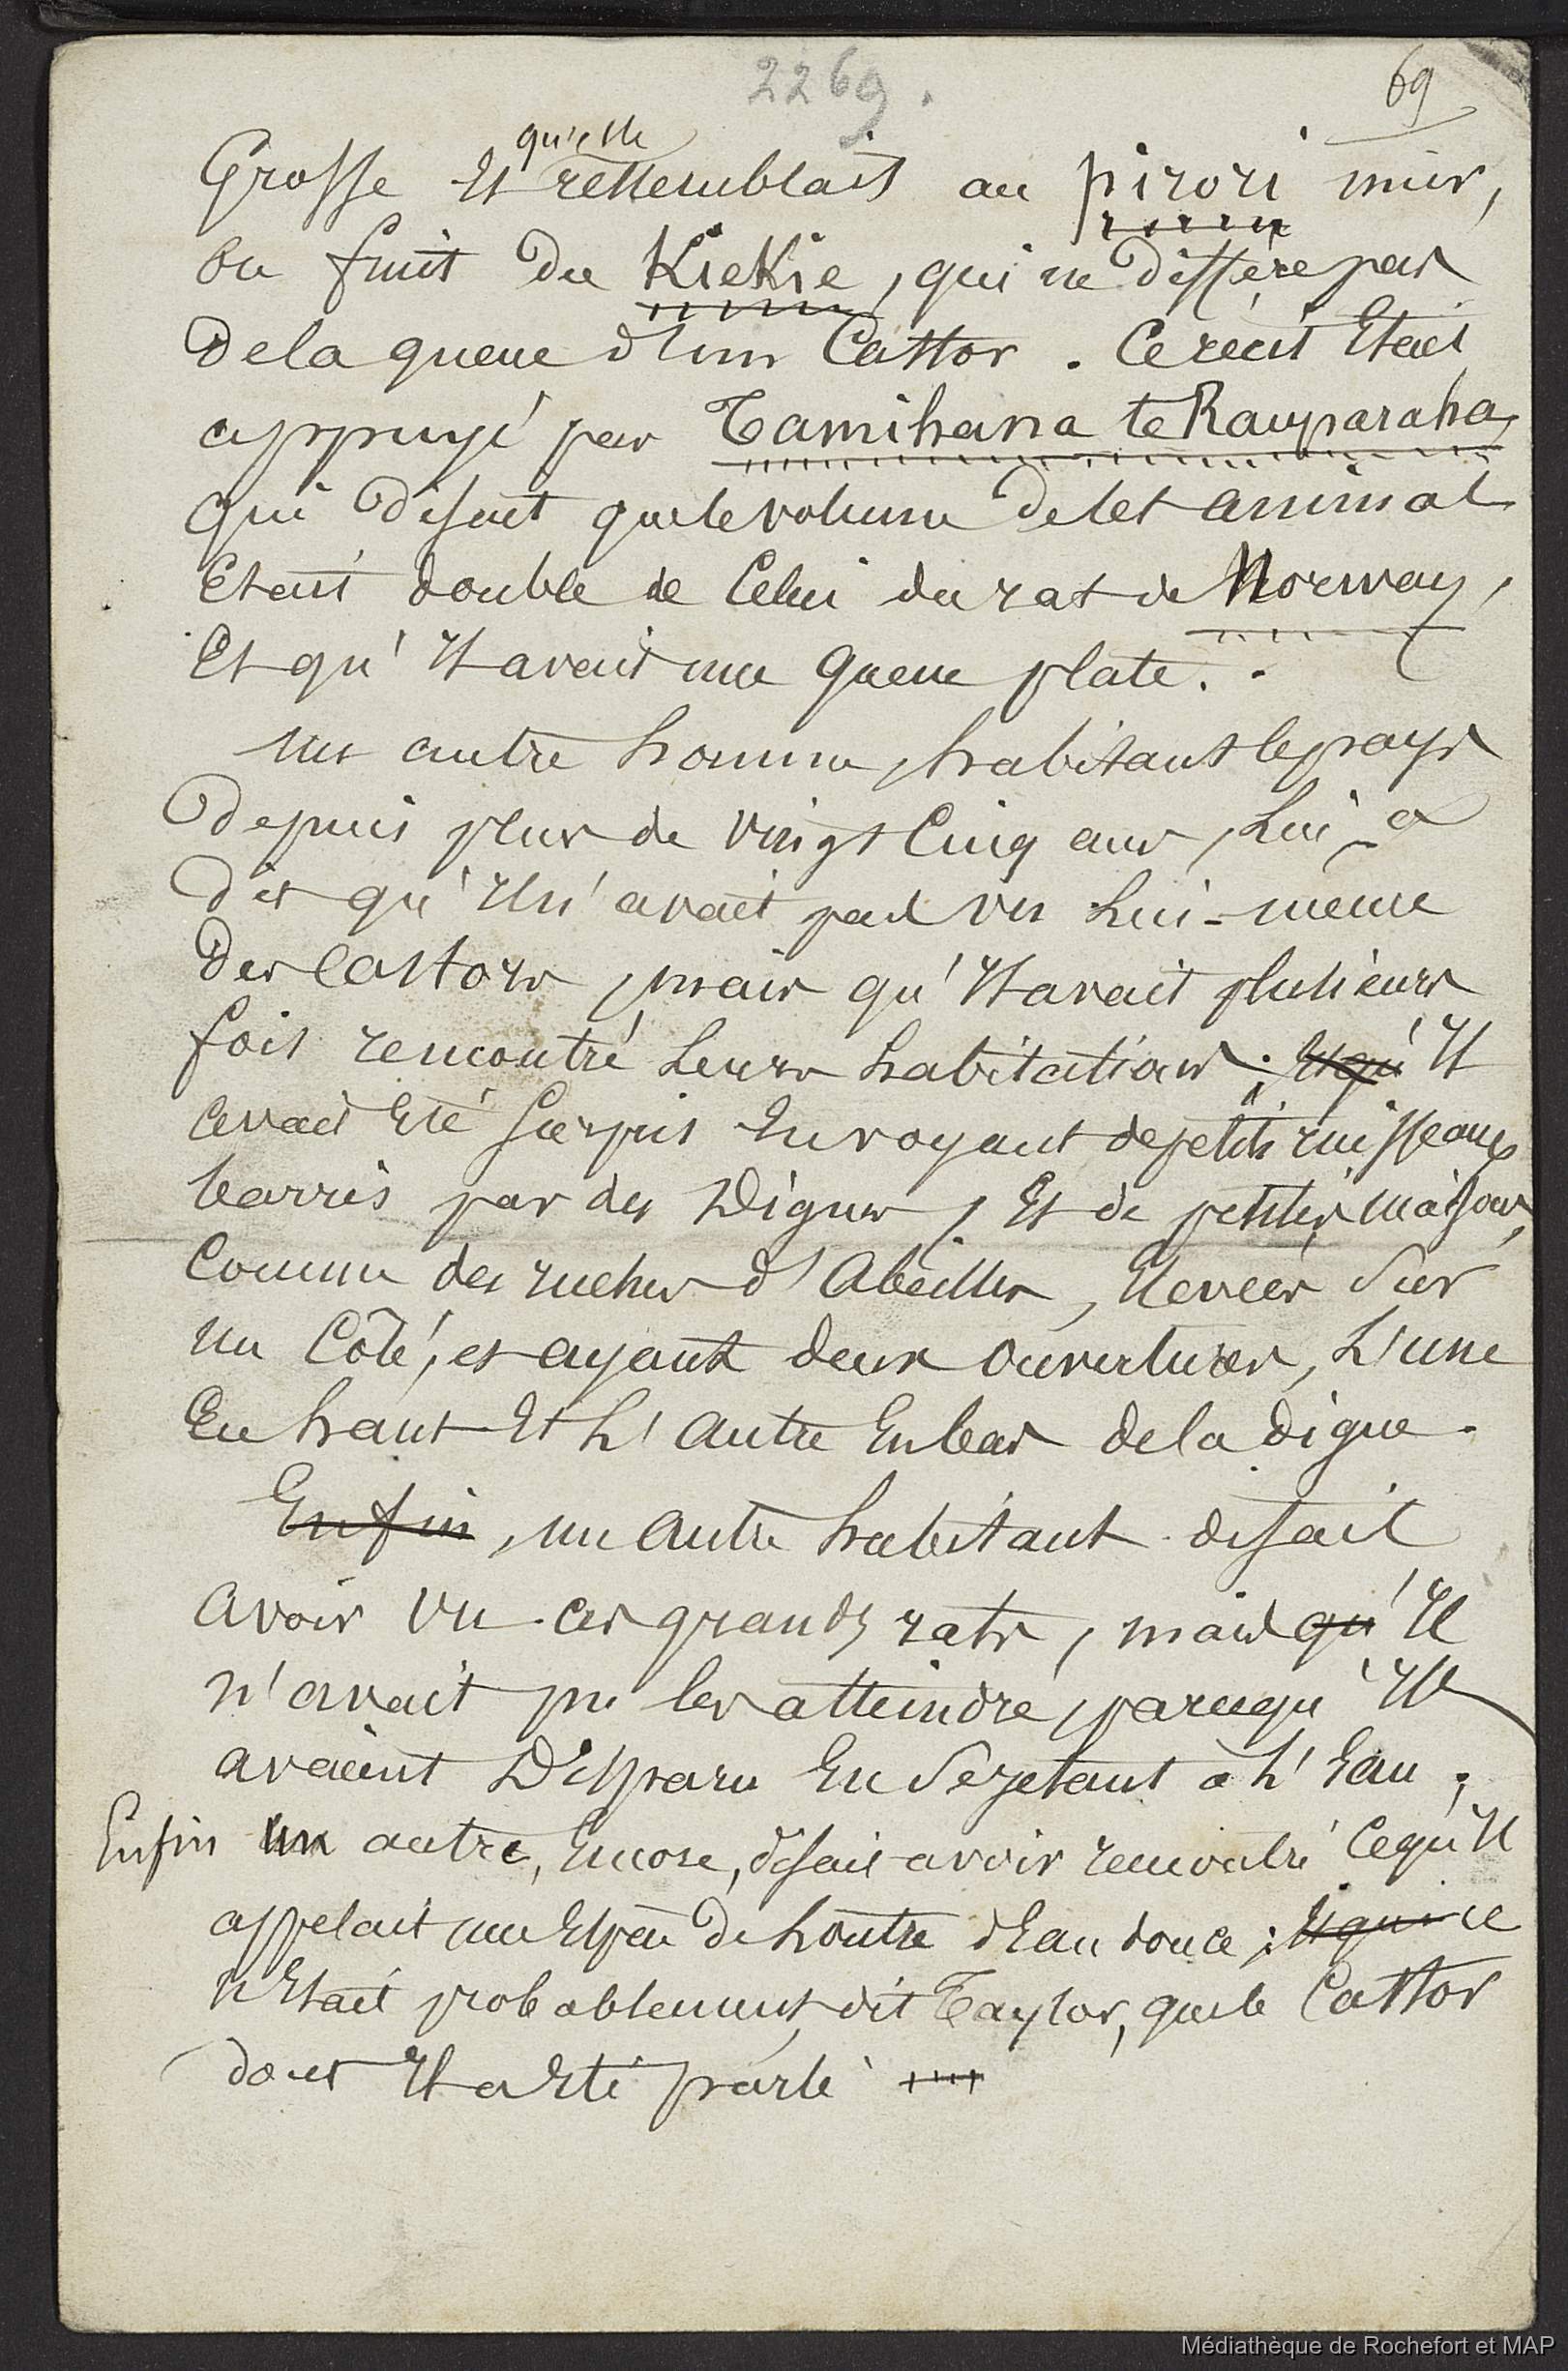 2269.
69
qu'elle
Grosse et ressemblait au pirori mûr,
ou fruit du Kiekie, qui ne diffère pas
de la queue d'un Castor. Ce récit était
appuyé par Tamihana te Rauparaha,
qui disait que le volume de cet animal
était double de celui du rat de Norway,
et qu'il avait une queue plate.
un autre homme, habitant le pays
depuis plus de vingt cinq ans, lui a
dit qu'il n'avait pas vu lui-même
des castors, mais qu'il avait plusieurs
fois rencontré leurs habitations; et qu'il
avait été surpris en voyant de petits ruisseaux
barrés par des digues, et de petites maisons,
comme des ruches d'abeilles, élevées sur
un côté, et ayant deux ouvertures, l'une
en haut et l'autre en bas de la digue.
Enfin, un autre habitant disait
avoir vu ces grands rats, mais qu'il
n'avait pu les atteindre, parcequ'ils
avaient disparu en se jetant à l'eau;
Enfin un autre, encore, disait avoir rencontré ce qu'il
appelait une espèce de loutre d'eau douce; et qui ce
n'était probablement, dit Taylor, que le Castor
dont il a été parlé
Médiathèque de Rochefort et MAP